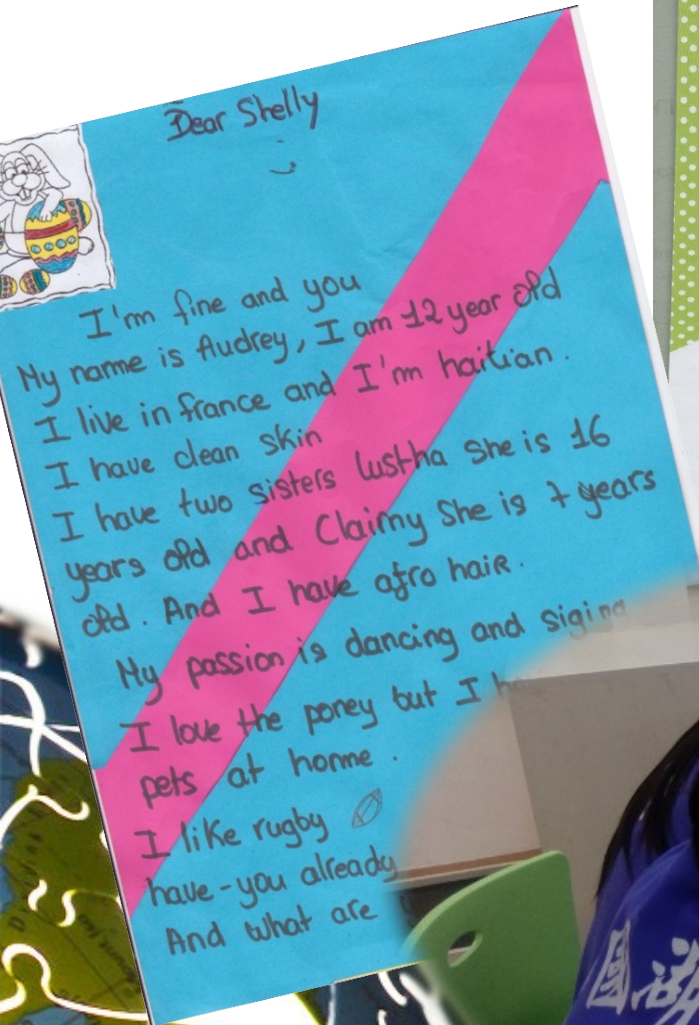 Dear Shelly
I'm fine and you
My name is Audrey, I am 12 year old
I live in france and I'm haitian.
I have clean skin
I have two sisters lustha she is 16
years old and Claimy She is 7 years
old. And I have afro hair.
My passion is dancing and siging
I love the poney but I
pets at home.
I like rugby
have-you already
And what are
國